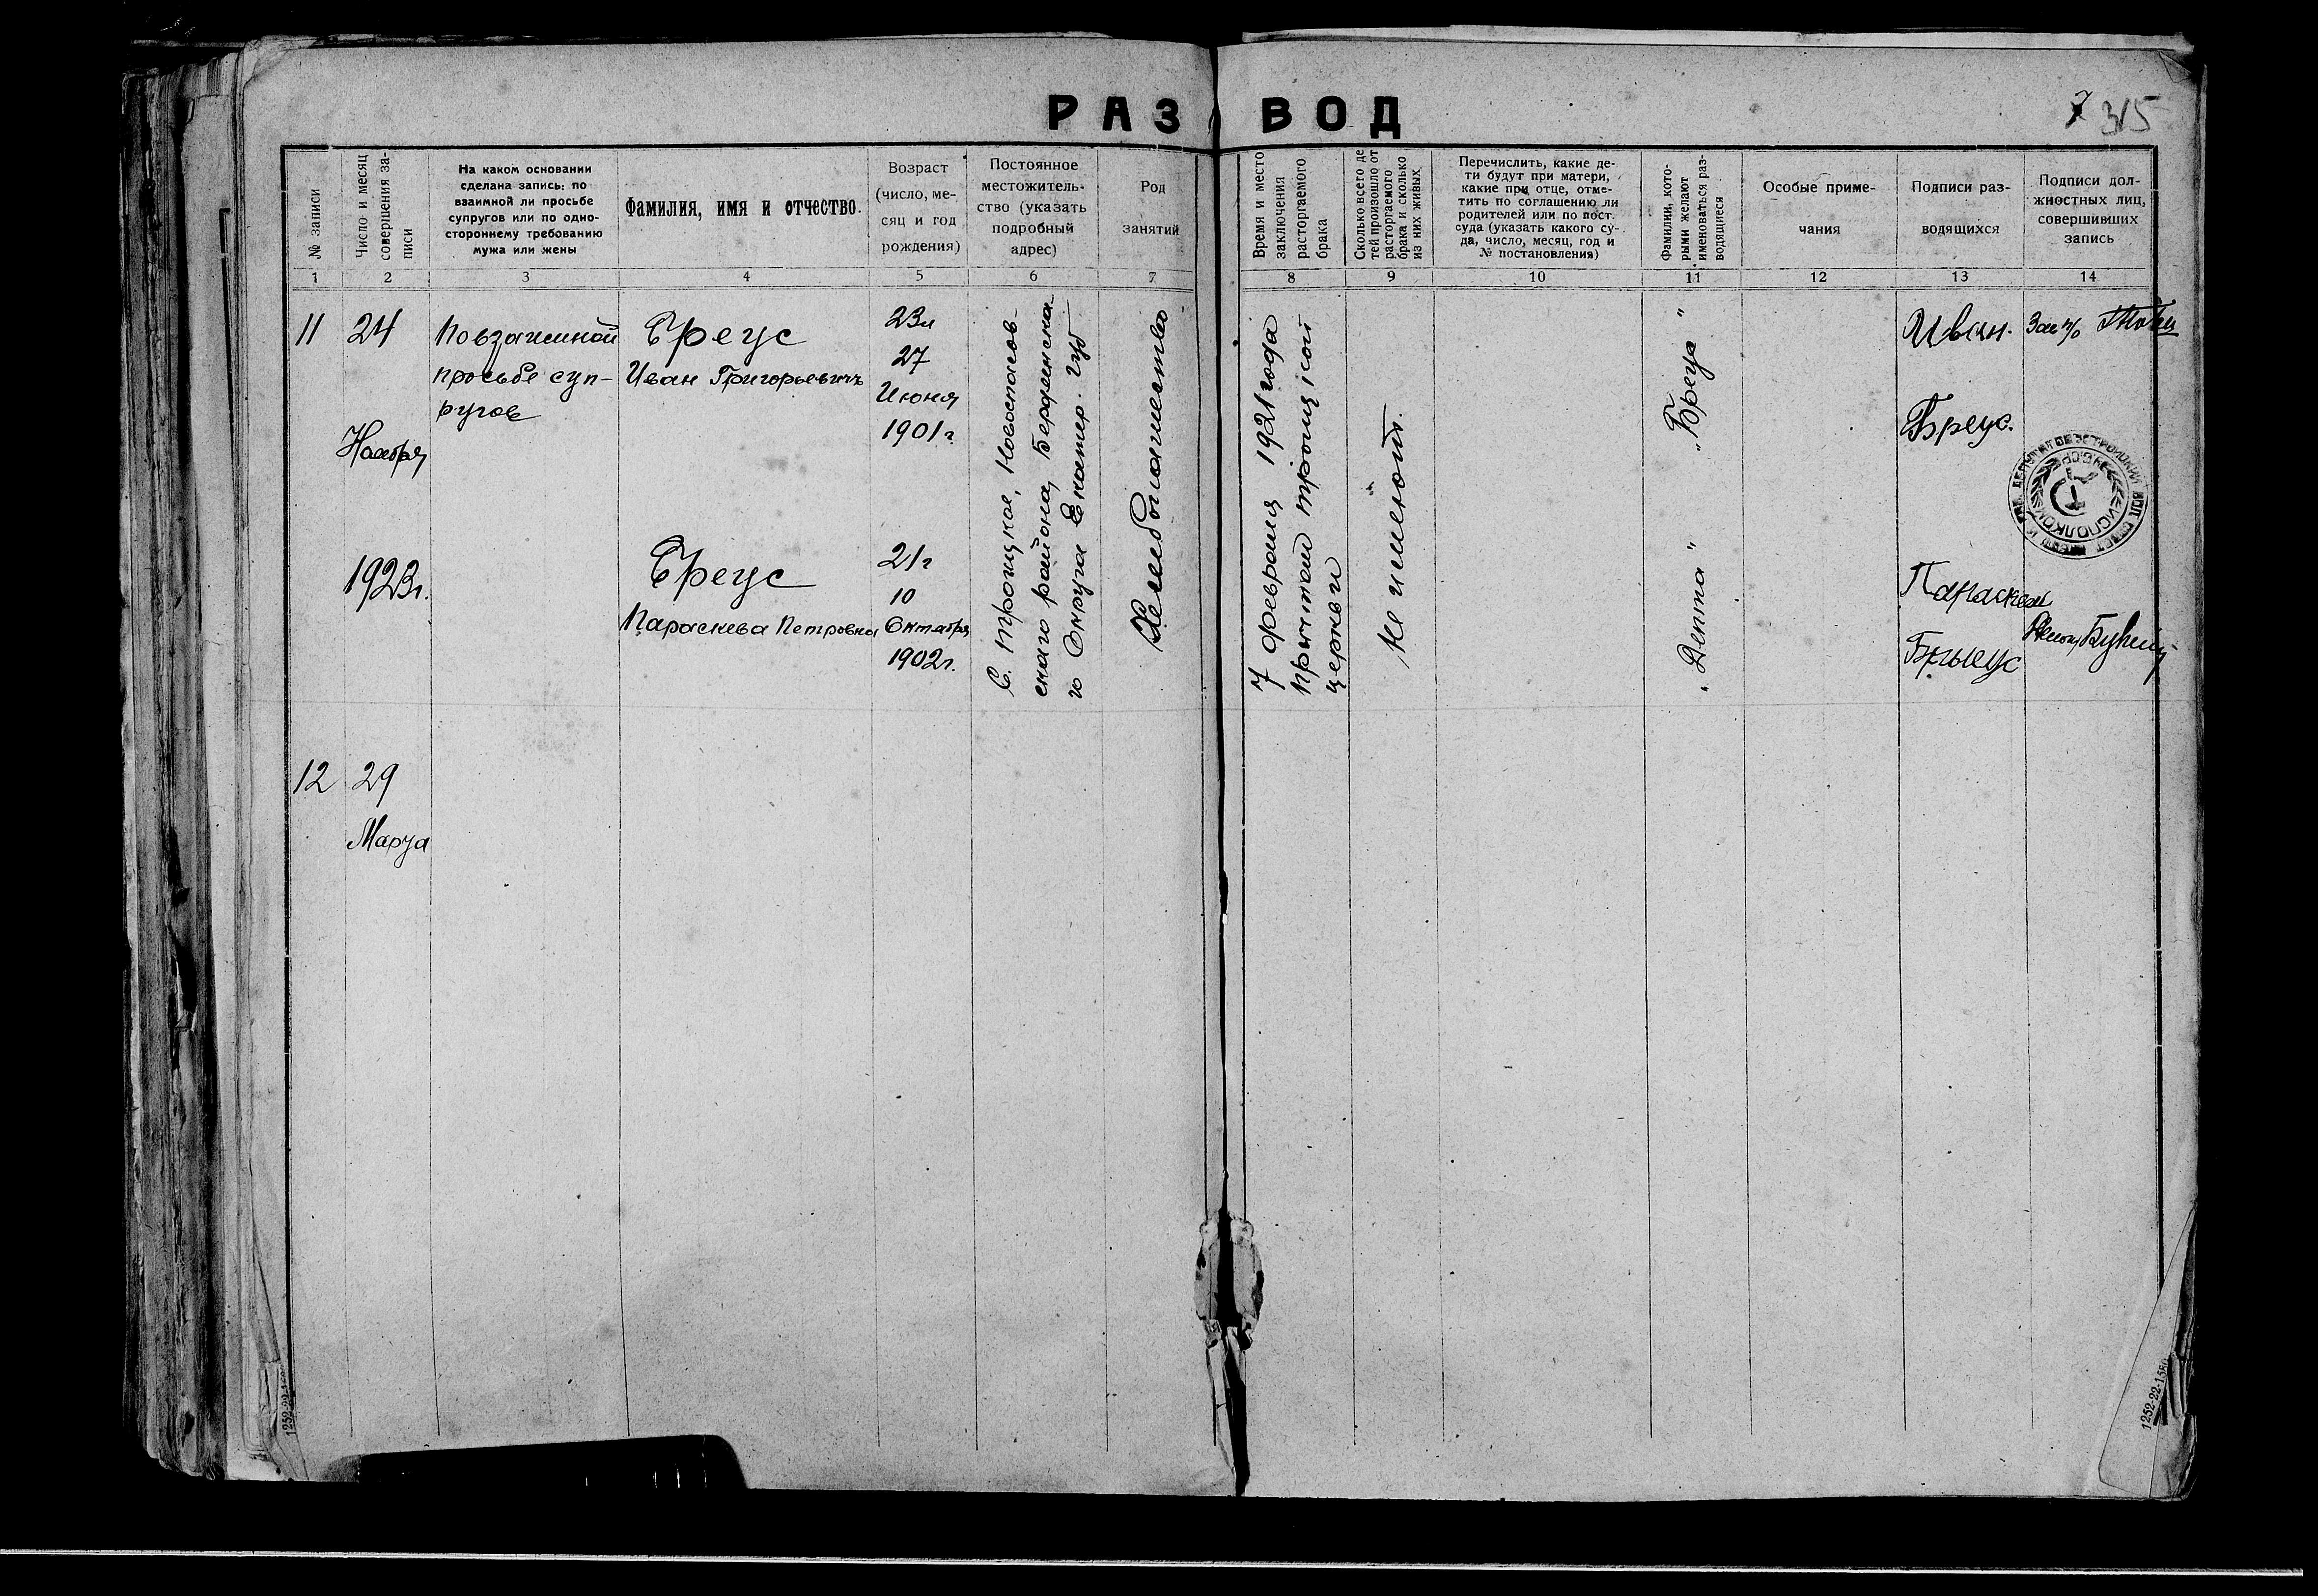 РАЗВОД
7 315
№ записи
Число и месяц
совершения за-
писи
На каком основании
сделана запись: по
взаимной ли просьбе
супругов или по одно-
стороннему требованию
мужа или жены
Фамилия, имя и отчество.
Возраст
(число, ме-
сяц и год
рождения)
Постоянное
местожитель-
ство (указать
подробный
адрес)
Род
занятий
Время и место
заключения
расторгаемого
брака
Сколько всего де
тей произошло от
расторгаемого
брака и сколько
из них живых
Перечислить, какие де-
ти будут при матери,
какие при отце, отме-
тить по соглашению ли
родителей или по пост.
суда (указать какого су-
да, число, месяц, год и
№ постановления)
Фамилии, кото-
рыми желают
именоваться раз-
водящиеся
Особые приме-
чания
Подписи раз-
водящихся
Подписи дол-
жностных лиц,
совершивших
запись
1 2 3 4 5 6 7 8 9 10 11 12 13 14
11
24
Ноября
1923г.
По взаимной
просьбе суп-
ругов
Бреус
Иван Григорьевичъ
23л
27
Июня
1901г
Бреус
Параскева Петровна
21г
10
Октября
1902г.
С. Троицкое, Новоспасов-
скаго района, Бердянска-
го Округа Екатер. губ
Хлебопашество
7 февраля 1921 года
причтом троицкой
церкви
Не имеют.
„Бреус"
„Депта"
Иван.
Бреус.
Параскева
Зав п/о
ИСПОЛКОМ
12
29
Марта
1252-22-155